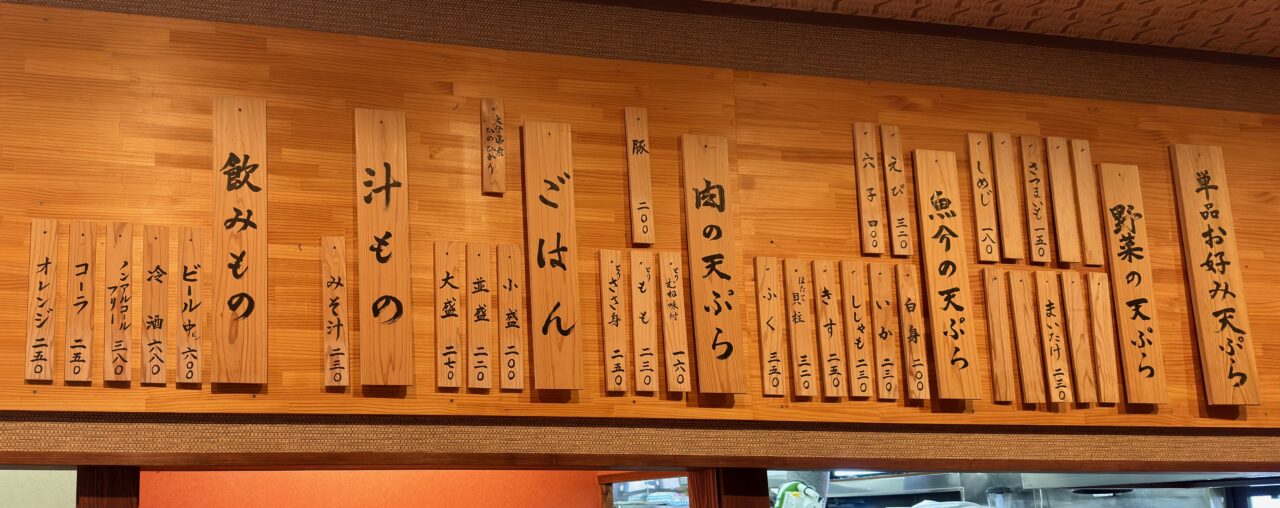 単品お好み天ぷら
野菜の天ぷら
さつまいも 一五〇
しめじ 一八〇
まいたけ 二三〇
魚介の天ぷら
えび 三二〇
穴子 四〇〇
白身 二〇〇
いか 二三〇
ししゃも 二三〇
きす 二五〇
ほたて貝柱 三二〇
ふく 三五〇
肉の天ぷら
豚 二〇〇
とりむね味付 一六〇
とりもも 二三〇
とりささ身 二五〇
ごはん
大分県産
ひのひかり
小盛 二〇〇
並盛 二二〇
大盛 二七〇
汁もの
みそ汁 一三〇
飲みもの
ビール 中 六〇〇
冷酒 六八〇
ノンアルコール
フリー 三八〇
コーラ 二五〇
オレンジ 二五〇